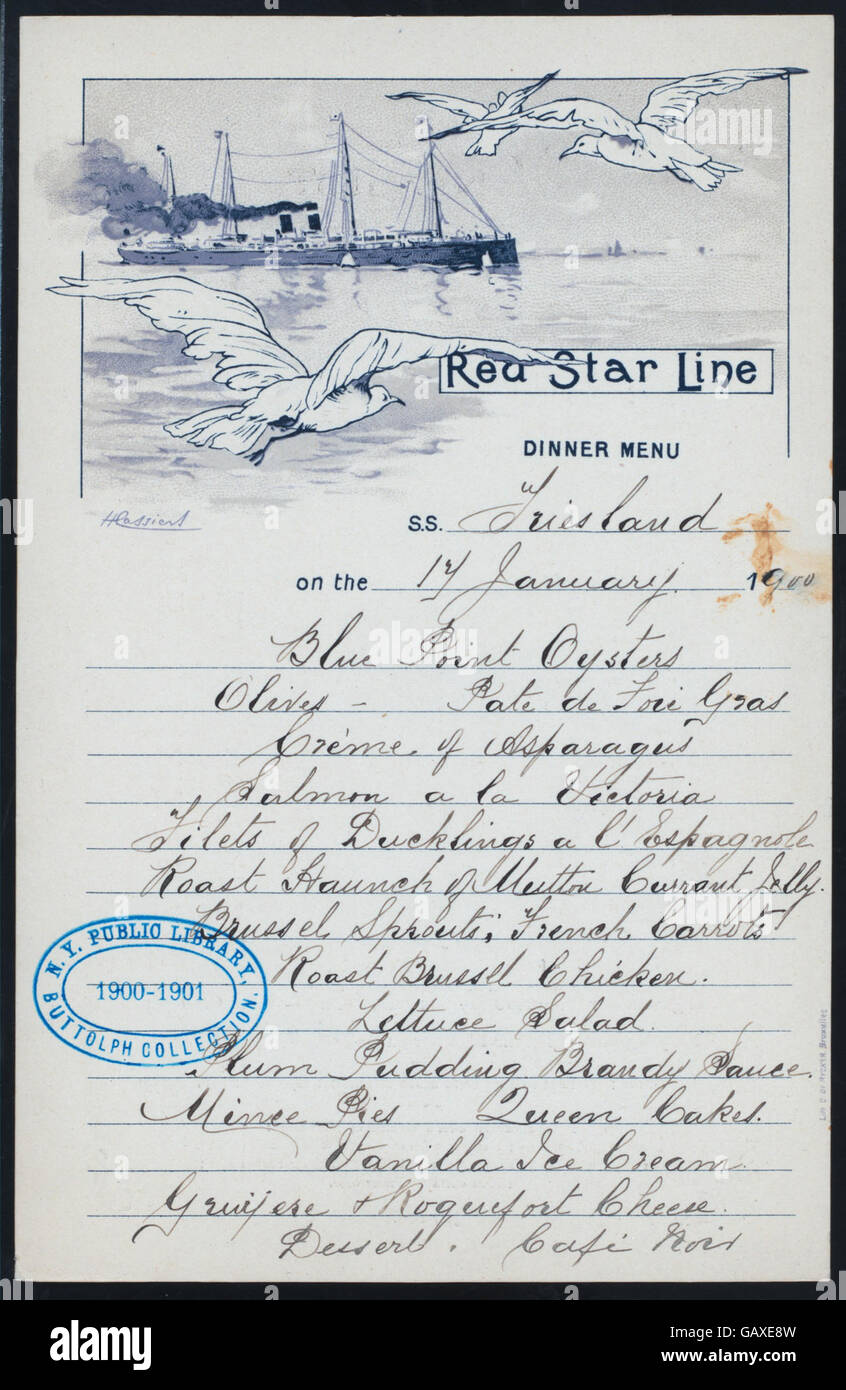 Red Star Line
DINNER MENU
HCassiers
S.S. Friesland
on the 17 January 1900
Blue Point Oysters
Olives - Pate de Foie Gras
Créme of Asparagus
Salmon a la Victoria
Filets of Ducklings a l'Espagnole
Roast Haunch of Mutton Currant Jelly.
Brussel Sprouts; French Carrots
Roast Brussel Chicken.
Lettuce Salad.
Plum Pudding Brandy Sauce.
Mince Pies Queen Cakes.
Vanilla Ice Cream
Gruyere & Roquefort Cheese.
Dessert. Café Noir
N.Y. PUBLIC LIBRARY,
1900-1901
BUTTOLPH COLLECTION.
alamy
alamy stock photo
Image ID: GAXE8W
www.alamy.com